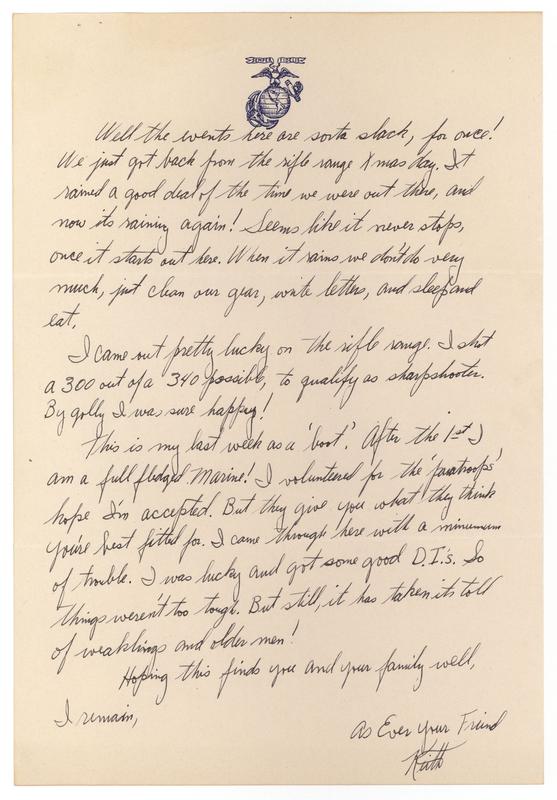 SEMPER FIDELIS
Well the events here are sorta slack, for once!
We just got back from the rifle range Xmas day. It
rained a good deal of the time we were out there, and
now its raining again! Seems like it never stops,
once it starts out here. When it rains we don't do very
much, just clean our gear, write letters, and sleep and
eat.
I came out pretty lucky on the rifle range. I shot
a 300 out of a 340 possible, to qualify as sharpshooter.
By golly I was sure happy!
This is my last week as a 'boot'. After the 1st I
am a full fledged Marine! I volunteered for the 'paratroops'
hope I'm accepted. But they give you what they think
you're best fitted for. I came through here with a minumum
of trouble. I was lucky and got some good D.I.'s. So
things weren't too tough. But still, it has taken its told
of weaklings and older men!
Hoping this finds you and your family well,
I remain,
As Ever Your Friend
Keith